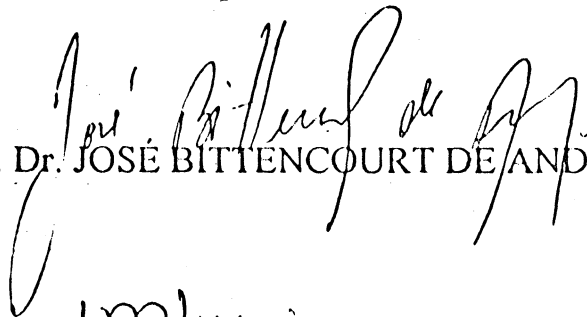 José Bittencourt de
Dr. JOSÉ BITTENCOURT DE AND